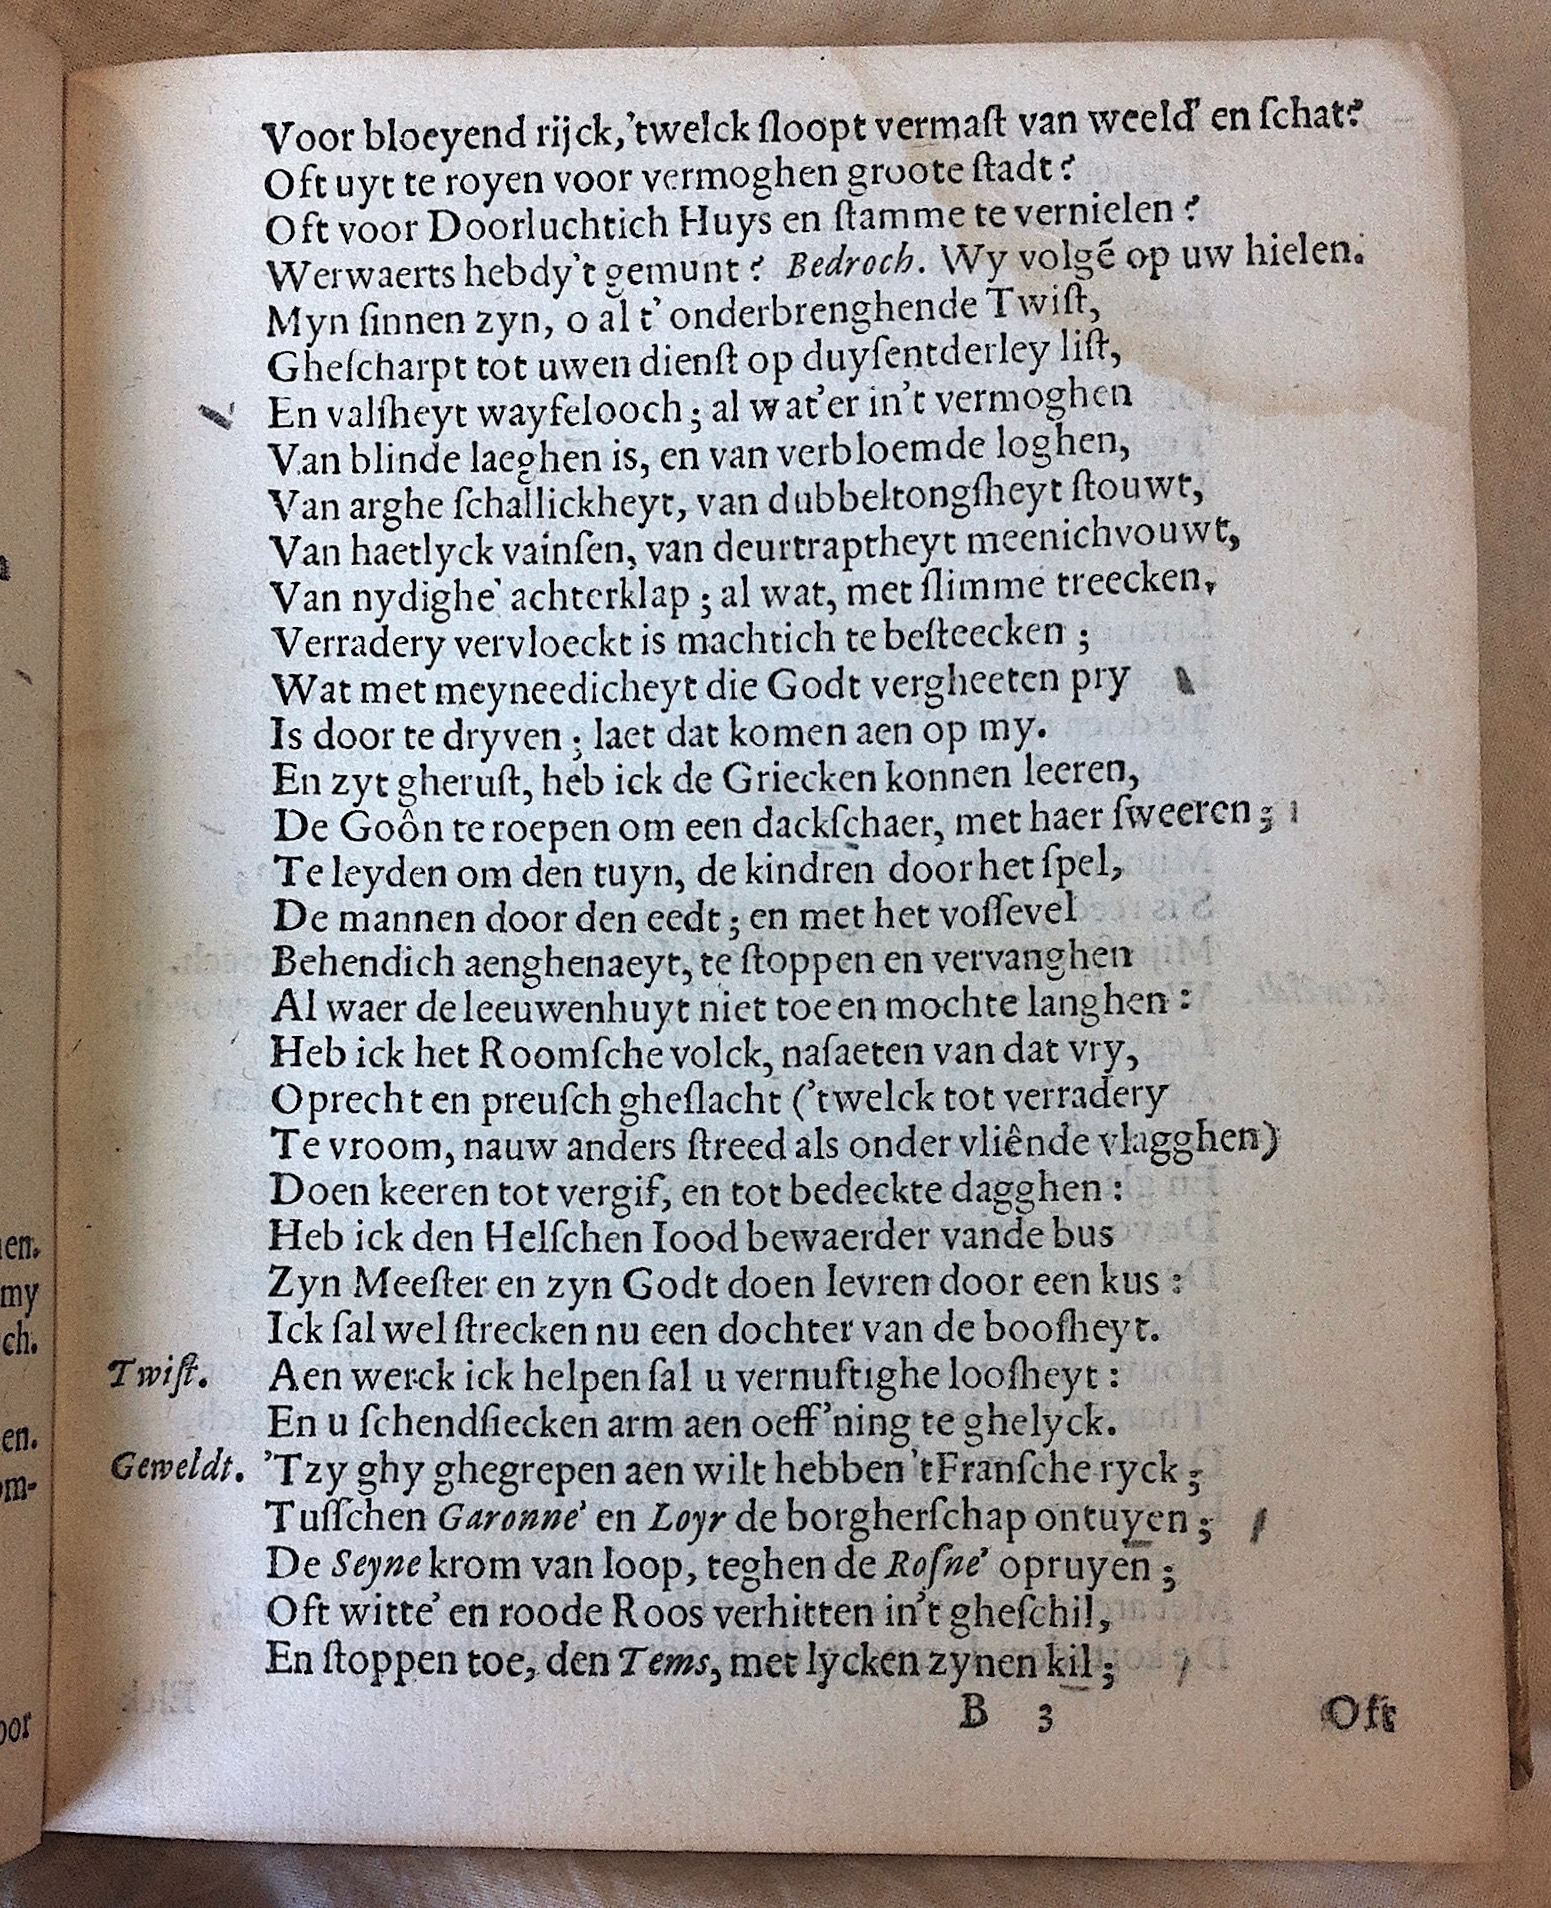 Voor bloeyend rijck, 'twelck ſloopt vermaſt van weeld' en ſchat?
Oft uyt te royen voor vermoghen groote ſtadt?
Oft voor Doorluchtich Huys en ſtamme te vernielen?
Werwaerts hebdy't gemunt? Bedroch. Wy volgẽ op uw hielen.
Myn ſinnen zyn, o al t' onderbrenghende Twiſt,
Gheſcharpt tot uwen dienſt op duyſentderley liſt,
En valſheyt wayfelooch; al wat'er in't vermoghen
Van blinde laeghen is, en van verbloemde loghen,
Van arghe ſchallickheyt, van dubbeltongſheyt ſtouwt,
Van haetlyck vainſen, van deurtraptheyt meenichvouwt,
Van nydighe' achterklap; al wat, met ſlimme treecken,
Verradery vervloeckt is machtich te beſteecken;
Wat met meyneedicheyt die Godt vergheeten pry
Is door te dryven; laet dat komen aen op my.
En zyt gheruſt, heb ick de Griecken konnen leeren,
De Goôn te roepen om een dackſchaer, met haer ſweeren;
Te leyden om den tuyn, de kindren door het ſpel,
De mannen door den eedt; en met het voſſevel
Behendich aenghenaeyt, te ſtoppen en vervanghen
Al waer de leeuwenhuyt niet toe en mochte langhen:
Heb ick het Roomſche volck, naſaeten van dat vry,
Oprecht en preuſch gheſlacht ('twelck tot verradery
Te vroom, nauw anders ſtreed als onder vliênde vlagghen)
Doen keeren tot vergif, en tot bedeckte dagghen:
Heb ick den Helſchen Iood bewaerder vande bus
Zyn Meeſter en zyn Godt doen levren door een kus:
Ick ſal wel ſtrecken nu een dochter van de booſheyt.
Twiſt. Aen werck ick helpen ſal u vernuftighe looſheyt:
En u ſchendſiecken arm aen oeff'ning te ghelyck.
Geweldt. 'Tzy ghy ghegrepen aen wilt hebben 't Franſche ryck;
Tuſſchen Garonne' en Loyr de borgherſchap ontuyen;
De Seyne krom van loop, teghen de Roſne' opruyen;
Oft witte' en roode Roos verhitten in't gheſchil,
En ſtoppen toe, den Tems, met lycken zynen kil;
B 3 Oft
en.
my
ch.
en.
om-
oor